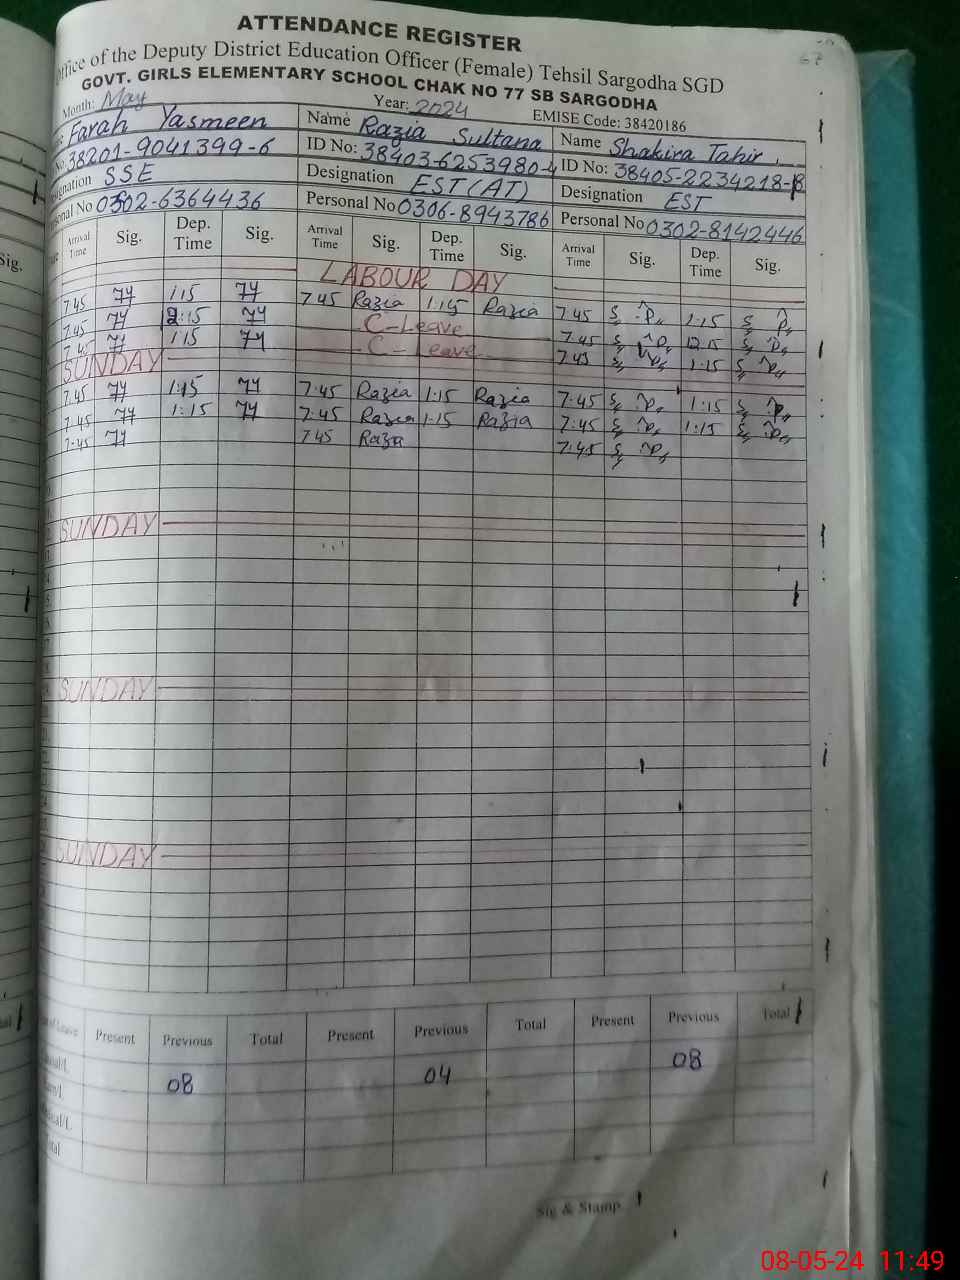 67
ATTENDANCE REGISTER
Office of the Deputy District Education Officer (Female) Tehsil Sargodha SGD
GOVT. GIRLS ELEMENTARY SCHOOL CHAK NO 77 SB SARGODHA
Month: May Year: 2024 EMISE Code: 38420186
Farah Yasmeen Name Razia Sultana Name Shakira Tahir
38201-9041399-6 ID No: 38403-6253980-4 ID No: 38405-2234218-8
SSE Designation EST (AT) Designation EST
0302-6364436 Personal No 0306-8943786 Personal No 0302-8142446
Arrival Time Sig. Dep. Time Sig. Arrival Time Sig. Dep. Time Sig. Arrival Time Sig. Dep. Time Sig.
Sig.
LABOUR DAY
7.45 1:15 7.45 Razia 1:15 Razia 7.45 1:15
7.45 2:15 C-Leave 7.45 12.15
7.45 1:15 C-Leave 7.45 1:15
SUNDAY
7.45 1:15 7.45 Razia 1:15 Razia 7.45 1:15
7.45 1:15 7.45 Razia 1:15 Razia 7.45 1:15
7.45 7.45 Razia 7.45
SUNDAY
SUNDAY
SUNDAY
Present Previous Total Present Previous Total Present Previous Total
08 04 08
Sig & Stamp
08-05-24 11:49